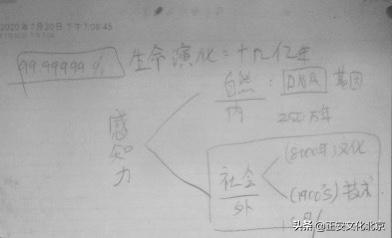 2020年7月20日 下午7:08:45
99.99999% 生命演化=十几亿年
自然: DNA 基因
内 250万年
感知力
社会 (8000年)文化
外 (1900'S)技术
头条 @正安文化北京